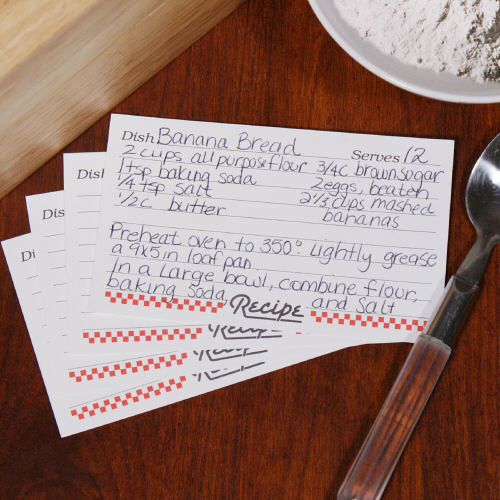 Dish Banana Bread Serves 12
2 cups all purpose flour 3/4c brown sugar
1 tsp baking soda 2 eggs, beaten
1/4 tsp salt 2 1/3 cups mashed
1/2c butter bananas
Preheat oven to 350°. Lightly grease
a 9x5 in loaf pan.
In a large bowl, combine flour,
baking soda and salt
Recipe
Dish
Dish
Di
Recipe
Recipe
Recipe